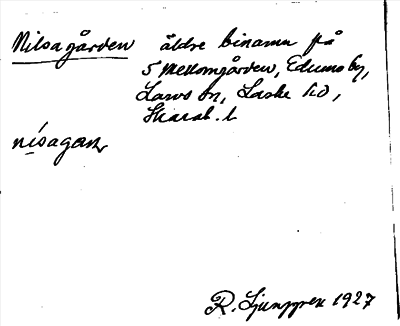 Nilsagården äldre binamn på
5 Mellomgården, Edumsby,
Larvs sn, Laske hd,
Skarab. l
nísagaṛn
R. Ljunggren 1927